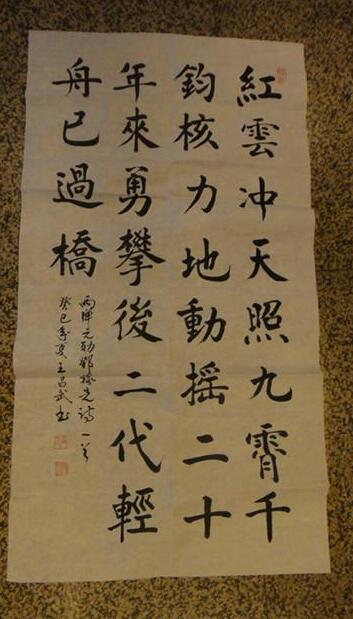 紅雲冲天照九霄千
鈞核力地動摇二十
年來勇攀後二代輕
舟已過橋
兩彈元勋鄧稼先詩一首
癸巳年夏王昌武书